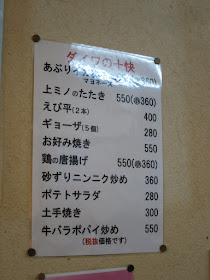 ダイワの十快
あぶりイカ 360)
マヨネーズ
上ミノのたたき 550(小360)
えび平(2本) 400
ギョーザ(5個) 280
お好み焼き 550
鶏の唐揚げ 550(小360)
砂ずりニンニク炒め 360
ポテトサラダ 280
土手焼き 300
牛バラポパイ炒め 550
(税抜価格です)